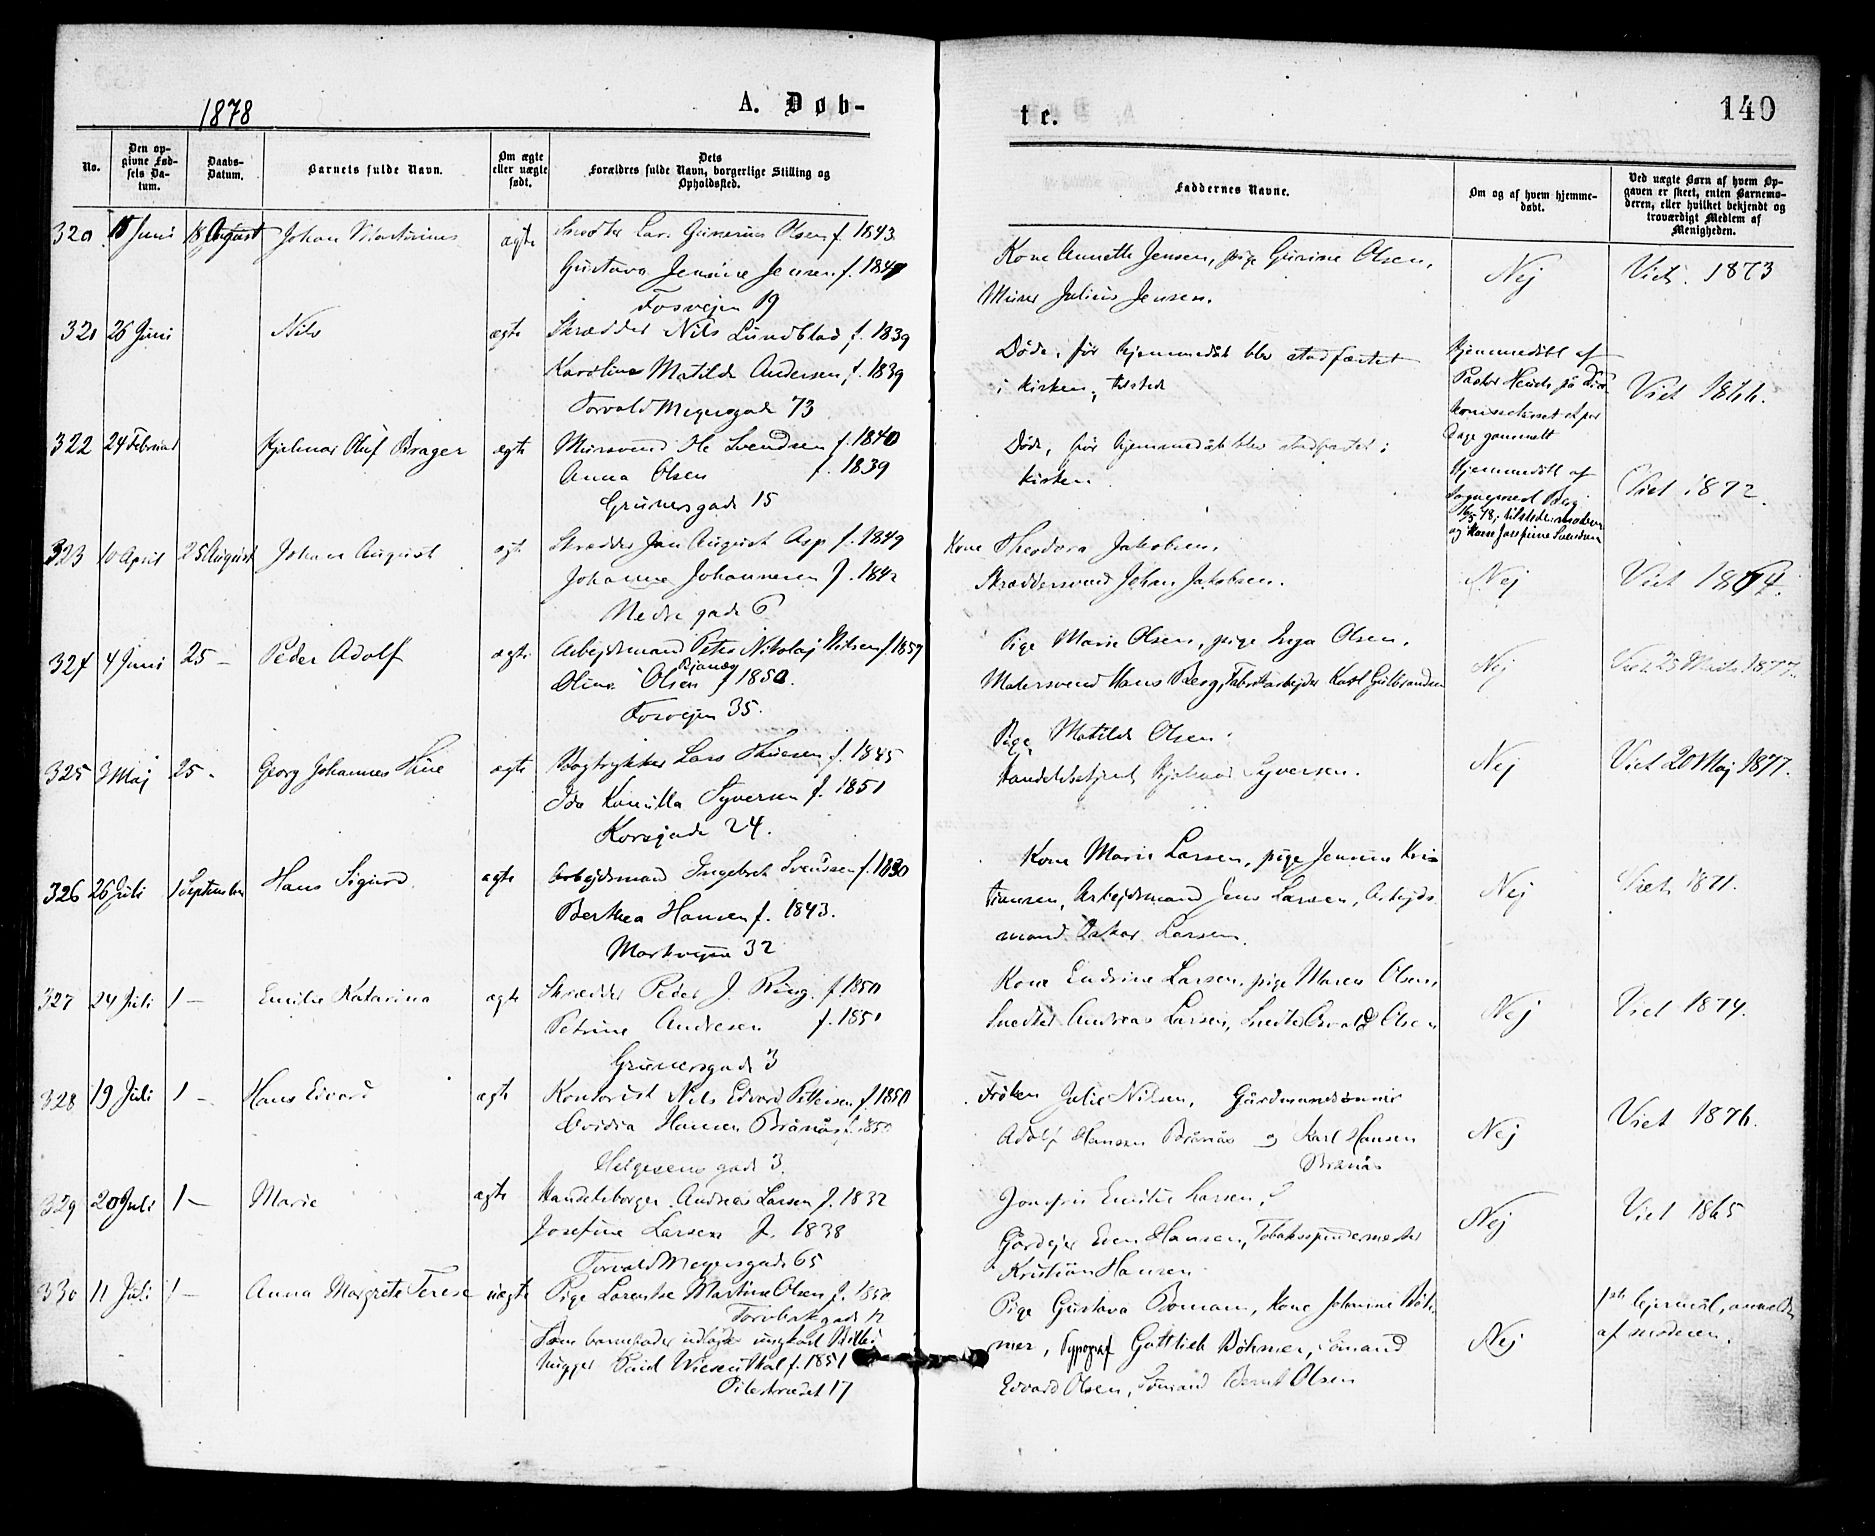 1878
A. Døb-
te.
140
No.
Den op-
givne Fød-
sels Da-
tum.
Daabs-
Datum.
Barnets fulde Navn.
Om ægte
eller uægte
født.
Dets
Forældres fulde Navn, borgerlige Stilling og
Opholdssted.
Faddernes Navne.
Om og af hvem hjemme-
døbt.
Ved uægte Børn af hvem Op-
gaven er skeet, enten Barnemo-
deren, eller hvilket bekjendt og
troværdigt Medlem af
Menigheden.
320 Juni 18 August Johan Martinius ægte Lars Gunerius Olsen f. 1843
Gustava Jensine Jensen f. 1847
Fosvejen 19
Kone Annette Jensen, pige Gurine Olsen,
Murer Julius Jensen.
Nej
Viet. 1873
321 26 Juni Nils ægte Skrædder Nils Lundblad f. 1839
Karoline Matilde Andersen f. 1839
Torvald Meyersgade 73
Døde, før hjemmedåb blev stadfæstet
i kirken,
Hjemmedøbt af
Pastor på
Dage gammelt
Viet 1866.
322 24 Februar Hjalmar Oluf Brager ægte Mursvend Ole Svendsen f. 1840
Anna Olsen f. 1839
Grünersgade 15
Døde, før hjemmedåb blev stadfæstet i
kirken
Hjemmedøbt af
Sognepræst
og Kone Josefine Svendsen
Viet 1872.
323 10 April 25 August Johan August ægt Skrædder Jan August Asp f. 1849
Johanne Johannesen f. 1842
Nedre gade 6
Kone Theodora Jakobsen,
Skræddersvend Johan Jakobsen.
Nej
Viet 1864.
324 4 Juni 25 – Peder Adolf ægte Arbejdsmand Peter Nikolaj Nilsen f. 1857
Oline Olsen f. 1850.
Fosvejen 35.
Pige Marie Olsen, pige Inga Olsen,
Malersvend Hans Berg, Fabrikarbejder Karl Gulbrandsen
Nej
Viet 25 1877.
325 3 Maj 25 - Georg Johannes Thue ægte Bogtrykker Lars Thuesen f. 1845
Ida Kamilla Syversen f. 1851
Korsgade 24.
Pige Matilde Olsen.
Handelsbetjent Hjalmar Syversen.
Nej
Viet 20 Maj 1877.
326 26 Juli 1 September Hans Sigurd. ægte Arbejdsmand Ingebret Svendsen f. 1830
Berthea Hansen f. 1843.
Markvejen 32
Kone Marie Larsen, pige Jensine Kris
tiansen, Arbejdsmand Jens Larsen, Arbejds
mand Oskar Larsen.
Nej
Viet 1871.
327 24 Juli 1 – Emilie Katarina ægte Skrædder Peder J. Ring. f. 1850
Petrine Andresen f. 1851
Grünersgade 3
Kone Endrine Larsen, pige Maren Olsen,
Snedker Andreas Larsen, Snedker Osvald Olsen
Nej
Viet 1874.
328 19 Juli 1 – Hans Edvard ægte Kontorist Nils Edvard Pettersen f. 1850
Ovidia Hansen Brånås f. 1850
Helgesens gade 3.
Frøken Julie Nilsen, Gårdmandsønner
Adolf Hansen Brånås og Karl Hansen
Brånås
Nej
Viet 1876.
329 20 Juli 1 – Marie ægte Handelsborger Andreas Larsen f. 1832
Josefine Larsen f. 1838
Torvald Meyersgade 65
Jomfru Emilie Larsen,
Gårdejer Even Hansen, Tobakspindemester
Kristian Hansen
Nej
Viet 1865
330 11 Juli 1 – Anna Margrete Terese uægte Pige Lorentse Martine Olsen f. 1850
Torvbakgade 12
Som barnefader udlagt ungkarl Billed
hugger Wiesenthal f. 1851
Pilestrædet 17
Pige Gustava Boman, Kone Johanne Böh
mer, Typograf Gottlieb Böhmer, Sömand
Edvard Olsen, Sömand Bernt Olsen
Nej
lejermål, anmeldt
af moderen.